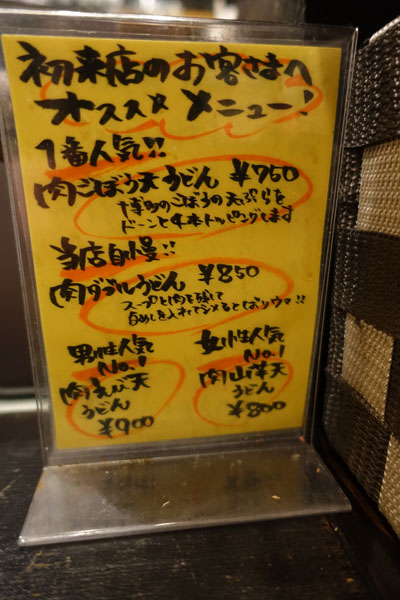 初来店のお客さまへ
オススメメニュー!
1番人気!!
肉ごぼう天うどん ¥750
博多のごぼうの天ぷらを
ドーンと4本トッピングします
当店自慢!!
肉ダブルうどん ¥850
スープと肉を残して
白めしを入れてシメるとばりウマ!!
男性人気
No.1
肉えび天
うどん
¥900
女性人気
No.1
肉山芋天
うどん
¥800